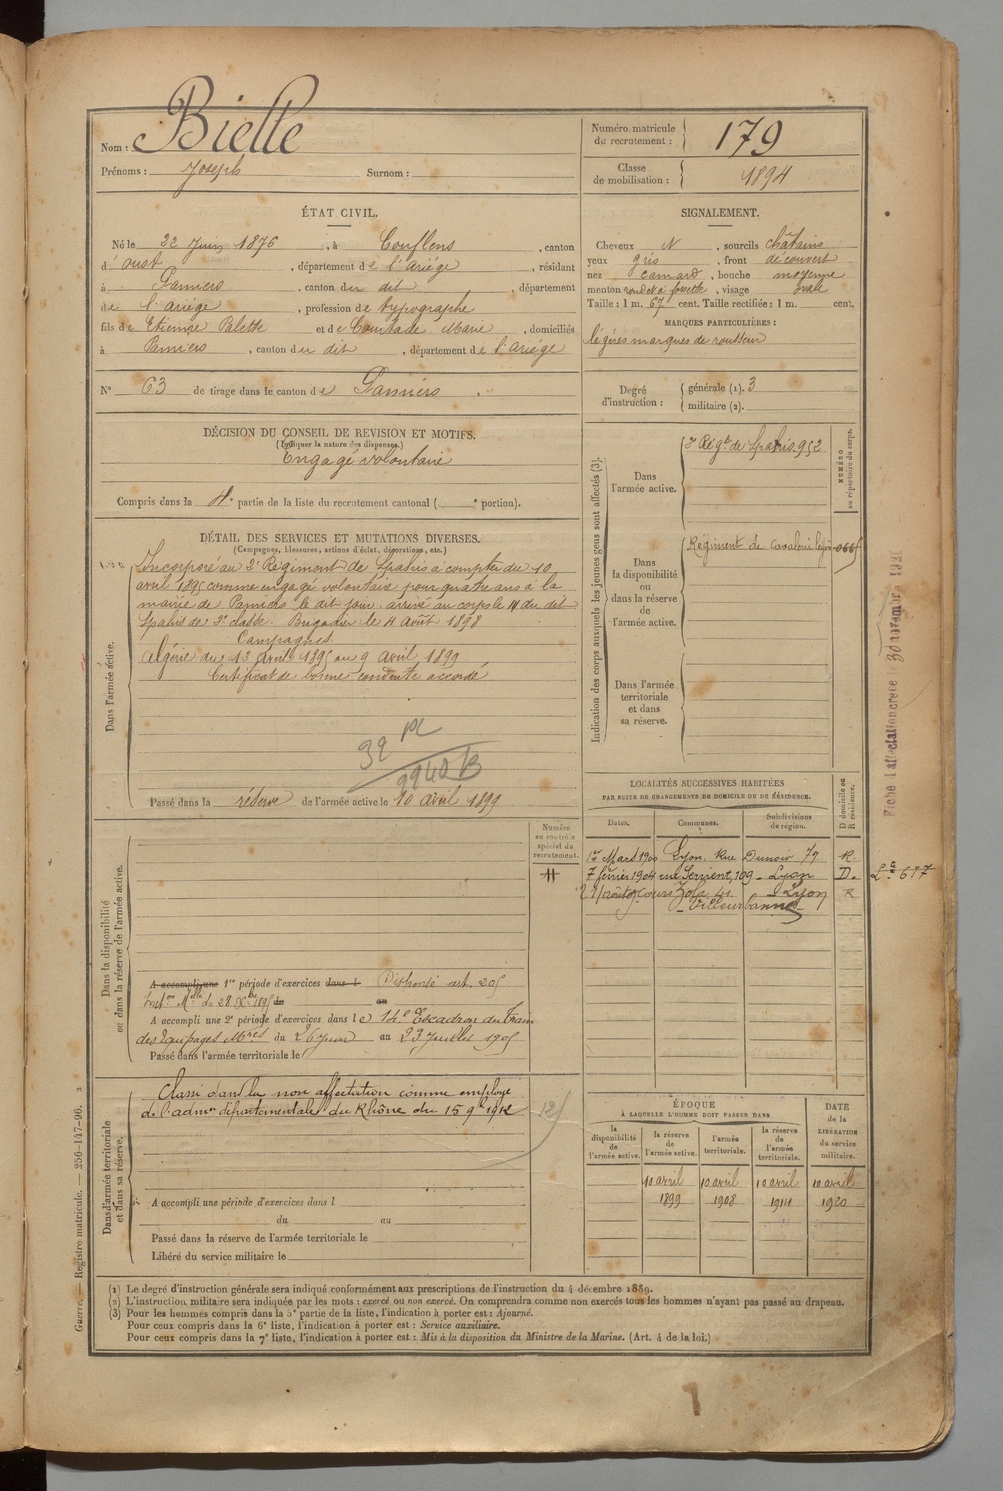 Nom : Bielle
Prénoms : Joseph Surnom :
Numéro matricule du recrutement : 179
Classe de mobilisation : 1894
ÉTAT CIVIL.
Né le 22 Juin 1876, à Couflens, canton
d'oust, département de l'ariège, résidant
à Pamiers, canton du dit, département
de l'ariège, profession de typographe
fils de Etienne Palette et de Courtade Marie, domiciliés
à Pamiers, canton du dit, département de l'ariège
N° 63 de tirage dans le canton de Pamiers.
SIGNALEMENT.
Cheveux N, sourcils châtains
yeux gris, front découvert
nez camard, bouche moyenne
menton rond et à fossette, visage ovale
Taille : 1 m. 67 cent. Taille rectifiée : 1 m. cent.
MARQUES PARTICULIÈRES :
légères marques de rousseur
Degré d'instruction : générale (1). 3
militaire (2).
DÉCISION DU CONSEIL DE REVISION ET MOTIFS.
(Indiquer la nature des dispenses.)
Engagé volontaire
Compris dans la 4e partie de la liste du recrutement cantonal ( e portion).
DÉTAIL DES SERVICES ET MUTATIONS DIVERSES.
(Campagnes, blessures, actions d'éclat, décorations, etc.)
Dans l'armée active.
Incorporé au 2e Régiment de Spahis à compter du 10
avril 1895 comme engagé volontaire pour quatre ans à la
mairie de Pamiers le dit jour. arrivé au corps le 14 du dit
Spahis de 2e classe. Brigadier le 4 Août 1898
Campagnes
Algérie du 13 avril 1895 au 9 avril 1899
Certificat de bonne conduite accordé
Passé dans la réserve de l'armée active le 10 avril 1899
Indication des corps auxquels les jeunes gens sont affectés (3).
NUMÉRO au répertoire du corps.
Dans l'armée active. 2e Régt de Spahis 952
Dans la disponibilité ou dans la réserve de l'armée active. Régiment de cavalerie légère
Dans l'armée territoriale et dans sa réserve.
Fiche d'affectation créée le 30 novembre 1921
LOCALITÉS SUCCESSIVES HABITÉES
PAR SUITE DE CHANGEMENTS DE DOMICILE OU DE RÉSIDENCE.
D domicile ou R résidence.
Dates. Communes. Subdivisions de région.
1er Mars 1900 Lyon. Rue Dunoir 79 R.
7 février 1904 rue Servient, 109 - Lyon D.
cours Zola 41 - Lyon R
- Villeurbanne
Numéro au contrôle spécial du recrutement.
Dans la disponibilité ou dans la réserve de l'armée active.
A accompli une 1re période d'exercices dans l Dispensé art. 205
Inston Melle du 28 Xbre 1895 du au
A accompli une 2e période d'exercices dans le 14e Escadron du Train
des Equipages Mres du 26 juin au 23 Juillet 1905
Passé dans l'armée territoriale le
Dans l'armée territoriale et dans sa réserve.
Classé dans la non affectation comme employé
de l'admon départementale du Rhône du 15 9bre 1912
A accompli une période d'exercices dans l
du au
Passé dans la réserve de l'armée territoriale le
Libéré du service militaire le
ÉPOQUE
À LAQUELLE L'HOMME DOIT PASSER DANS
DATE de la LIBÉRATION du service militaire.
la disponibilité de l'armée active. la réserve de l'armée active. l'armée territoriale. la réserve de l'armée territoriale.
10 avril 10 avril 10 avril 10 avril
1899 1908 1914 1920
(1) Le degré d'instruction générale sera indiqué conformément aux prescriptions de l'instruction du 4 décembre 1889.
(2) L'instruction militaire sera indiquée par les mots : exercé ou non exercé. On comprendra comme non exercés tous les hommes n'ayant pas passé au drapeau.
(3) Pour les hommes compris dans la 5e partie de la liste, l'indication à porter est : Ajourné.
Pour ceux compris dans la 6e liste, l'indication à porter est : Service auxiliaire.
Pour ceux compris dans la 7e liste, l'indication à porter est : Mis à la disposition du Ministre de la Marine. (Art. 4 de la loi.)
Guerre. — Registre matricule. — 256-147-96. 2